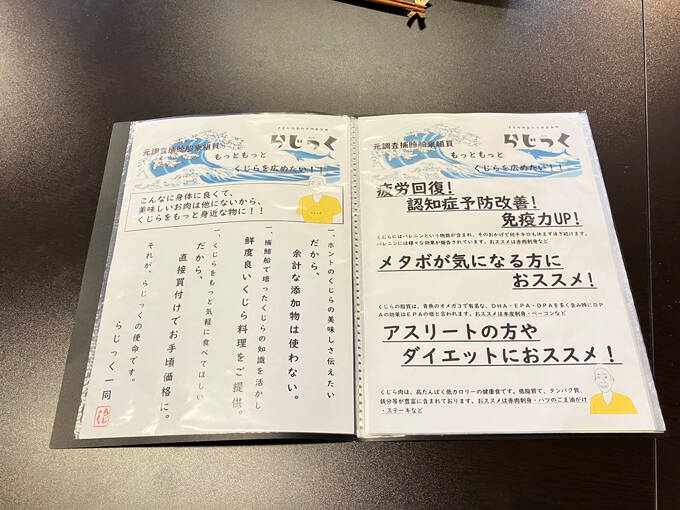 元調査捕鯨船乗組員
らじっく
もっともっと
くじらを広めたい！！
こんなに身体に良くて、
美味しいお肉は他にないから、
くじらをもっと身近な物に！！
一、ホントのくじらの美味しさ伝えたい
だから、
余計な添加物は使わない。
一、捕鯨船で培ったくじらの知識を活かし
鮮度良いくじら料理をご提供。
一、くじらをもっと気軽に食べてほしい
だから、
直接買付けでお手頃価格に。
それが、らじっくの使命です。
らじっく一同
元調査捕鯨船乗組員
らじっく
もっともっと
くじらを広めたい！！
疲労回復！
認知症予防改善！
免疫力UP！
くじらにはバレニンという物質が含まれ、そのおかげで何千キロも休まず泳ぎ続けます。
バレニンには様々な効果が報告されています。おススメは赤肉刺身など
メタボが気になる方に
おススメ！
くじらの脂質は、青魚のオメガ3で有名な、DHA・EPA・DPAを多く含み特にDP
Aの効果はEPAの倍と言われます。おススメは本皮刺身・ベーコンなど
アスリートの方や
ダイエットにおススメ！
くじら肉は、高たんぱく低カロリーの健康食です。低脂質で、タンパク質、
鉄分等が豊富に含まれております。おススメは赤肉刺身・ハツのごま油がけ
・ステーキなど